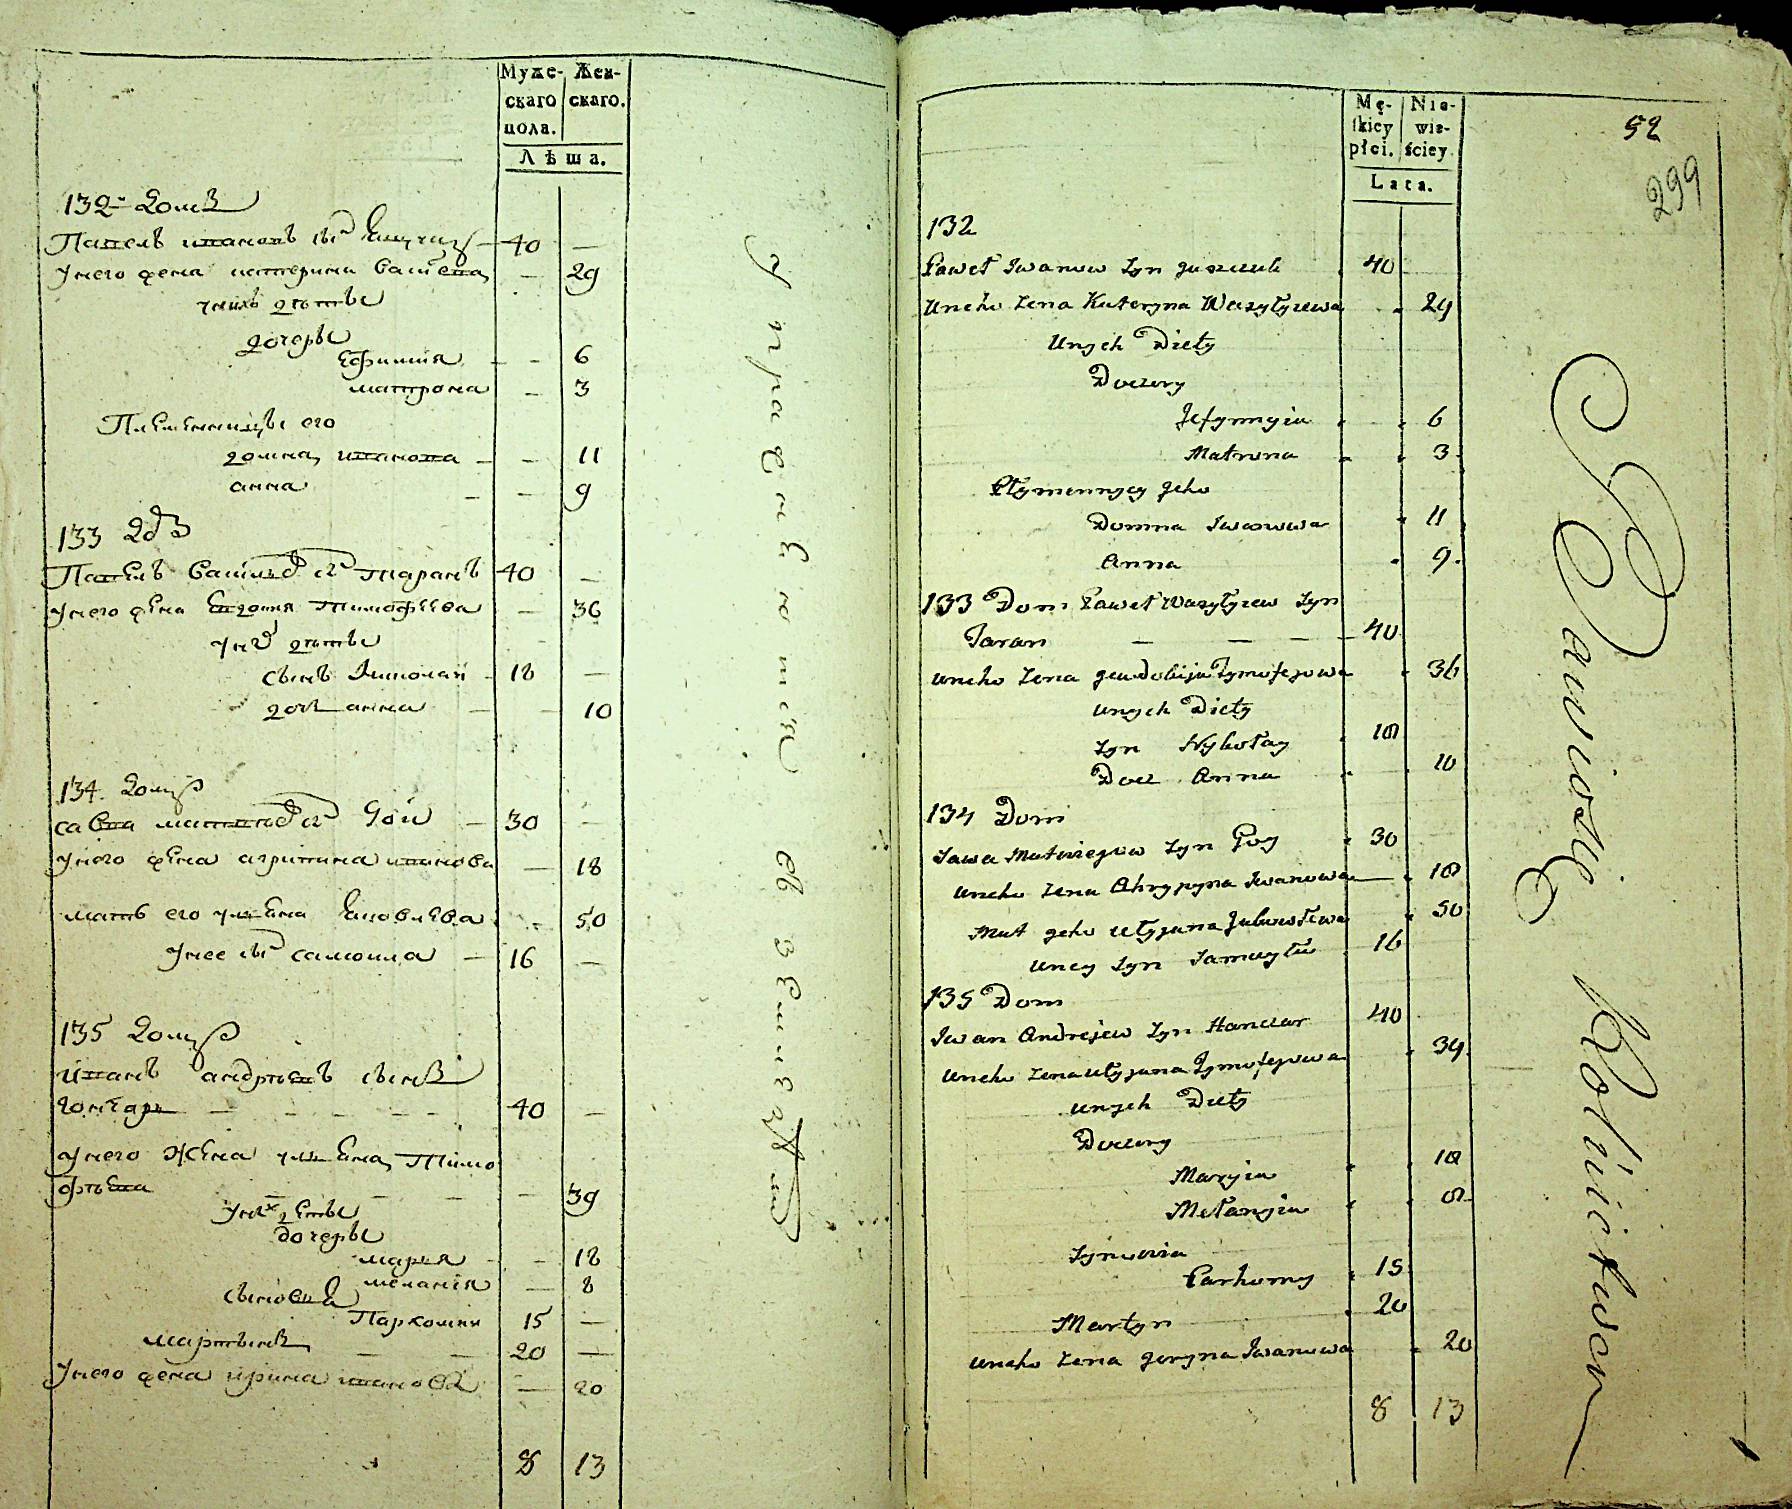 Муже-
скаго
пола.
Жен-
скаго.
Лѣта.
132 домъ
Павелъ ивановъ сынъ 40 —
у него жена катерина василева — 29
у нихъ дѣты
дочеры
Ефимия — 6
матрона — 3
Племенницы его
домна иванова — 11
анна — 9
133 д
Павелъ василев сн таранъ 40 —
у него жена Евдокия тимофеева — 36
у них дѣты
сынъ Николай 18 —
доч анна — 10
134 дому
савва матвѣев сн Гой — 30 —
у него жена агрипина иванова — 18
мать его улиана Яковлева — 50
у нее сн самоила — 16 —
135 дому
иванъ андрѣевъ сынъ
гончаръ — 40 —
у него жена улиана Тимо
фѣева — 39
у них дѣты
дочеры
мария — 18
мелания — 8
сынове
Паркомии 15 —
мартынъ — 20 —
у него жена ирина иванова — 20
8 13
У праздного
Mę-
skiey
płci.
Nie-
wie-
ściey
Lata.
52
299
132
Paweł Iwanow Syn Juszczuk 40
Uneho Zena Kateryna Wasyłyiewa 29
Unych Diety
Doczery
Jefymyia 6
Matrona 3
Płymennycy Jeho
Domna Iwanowa 11
Anna 9.
133 Dom Paweł Wasyłyiew Syn
Taran — — — 40
Uneho Zena Jewdokija Tymofejowa 36
Unych Diety
Syn Nykołay 18
Docz Anna 10
134 Dom
Sawa Matwiejow Syn Goy 30
Uneho Zena Ahrypyna Iwanowa — 18
Mat Jeho Ulyjana Jakowlewa 50
Uney Syn Samuyło 16
135 Dom
Iwan Andrejew Syn Hanczar 40
Uneho Zena Ulyjana Tymofejowa 39
Unych Diety
Doczery
Maryia 18
Mełanyia 8
Synowia
Parkomy 15
Martyn 20
Uneho Zena Jeryna Iwanowa 20
8 13